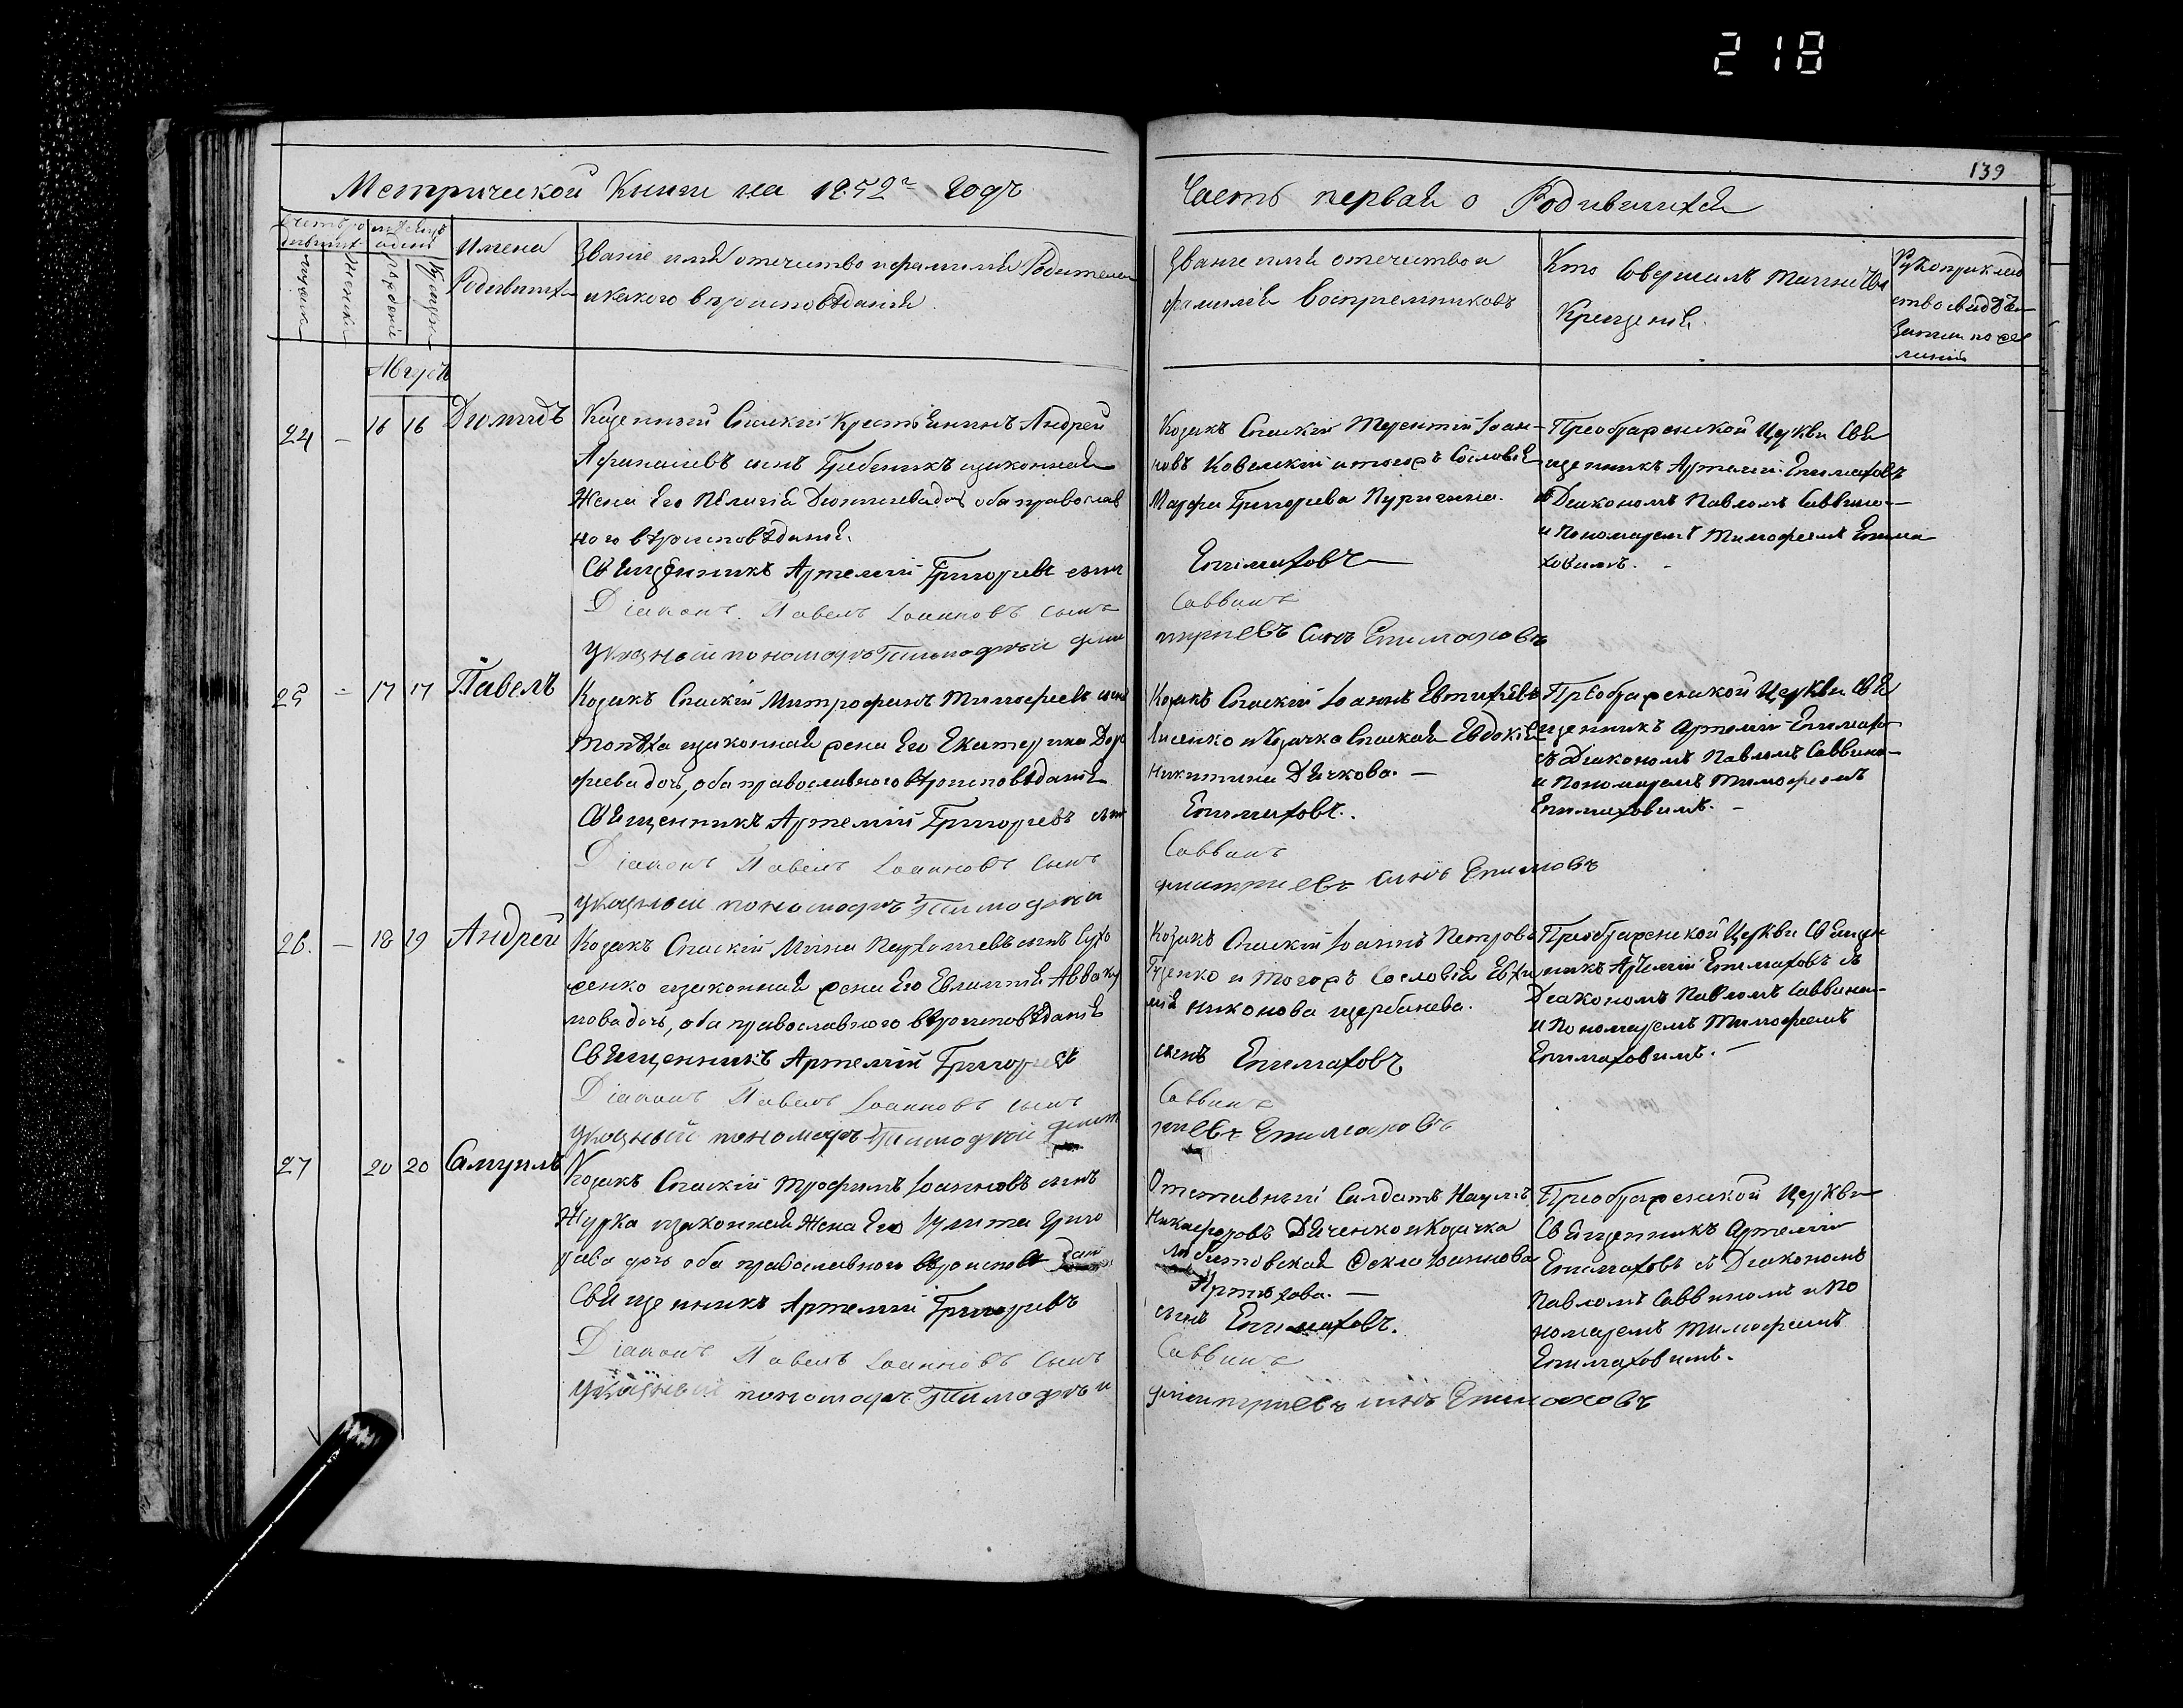 218
139
Метрической Книги на 1852г годъ
Часть первая о Родившихся
Имена
Родивших
Званіе имя отечество и фамилія Родителей
и какого вѣроисповѣданія
Званіе имя отечество и
фамилія Воспріемниковъ
Кто Совершалъ таинство
Крещенія.
Рукоприклад
ство свидѣте
Августъ
24 — 16 16 Діомидъ
Казенный Спаскій Крестьянинъ Андрей
Афанасіевъ сынъ Гребеникъ изаконная
Жена Его Пелагія дочь оба православ
ного вѣроисповѣданія.
Священникъ Артемій Григоріевъ сынъ
Діаконъ Павелъ Іоанновъ сынъ
Указный пономарь Тимофѣй дми
Козакъ Спаскій Терентій Іоан-
новъ Ковалскій и тогожъ Сословія
Марфа Григоріева
Епимаховъ
Саввинъ
тріевъ Сынъ Епимаховъ
Преображенской Церкви Свя
щенникъ Артемій Епимаховъ
съ Діакономъ Павломъ Саввино-
и Пономаремъ Тимофеемъ Епима
ховимъ. -
25 - 17 17 Павелъ
Козакъ Спаскій Митрофанъ Тимофеевъ сынъ
изаконная жена Его Екатерина Доро
феева дочь, оба православного вѣроисповѣданія
Священникъ Артемій Григоріевъ сынъ
Діаконъ Павелъ Іоанновъ сынъ
указный пономарь Тимофѣй
Козакъ Спаскій Іоаннъ Евтихіевъ
Лисенко и Козачка Спаская Евдокія
Никитина Дячкова. —
Епимаховъ.
Саввинъ
дмитріевъ синъ Епимовъ
Преображенской Церкви Свя
щенникъ Артемій Епимахо
съ Діакономъ Павломъ Саввино-
и Пономаремъ Тимофеемъ
Епимаховимъ. -
26. — 18 19 Андрей
Козакъ Спаскій Мина сынъ Сухо
женко изаконная жена Его Евлампія Авваку
мова дочь, оба православного вѣроисповѣданія
Священникъ Артемій Григоріевъ
Діаконъ Павелъ Іоанновъ сынъ
указный пономарь Тимофѣй дмит
Козакъ Спаскій Іоаннъ Петровъ
Гуценко и тогожъ Сословія Евхи
мія Никонова щербачева.
сынъ Епимаховъ
Саввинъ
ріевъ Епимаховъ
Преображенской Церкви Священ
никъ Артемій Епимаховъ съ
Діакономъ Павломъ Саввино-
и Пономаремъ Тимофеемъ
Епимаховимъ. —
27 20 20 Самуилъ
Козакъ Спаскій Трофимъ Іоанновъ сынъ
Журка изаконная Жена Его Іулита Григо
ріева дочь оба православного вѣроисповѣ даній
Священникъ Артемій Григоріевъ
Діаконъ Павелъ Іоанновъ сынъ
указный пономарь Тимофѣй
Отставный Салдатъ Наумъ
Никифоровъ Дяченко и Козачка
Фекла Іоаннова
сынъ Епимаховъ.
Саввинъ
дмитріевъ синъ Епимаховъ
Преображенской Церкви
Священникъ Артемій
Епимаховъ съ Діакономъ
Павломъ Саввиномъ и По
номаремъ Тимофеемъ
Епимаховимъ.